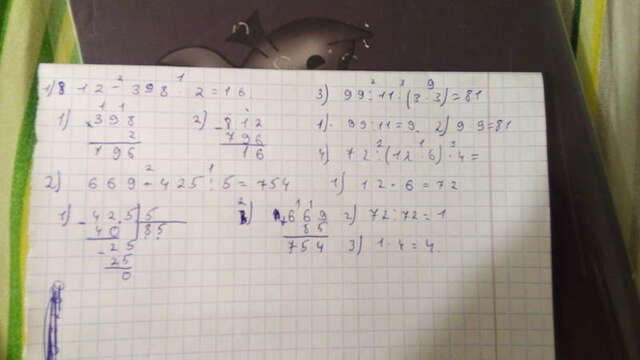 1) 812 - 398 · 2 = 16
1) 398
2
796
2) 812
- 796
16
2) 669 + 425 : 5 = 754
1) 425 | 5
- 40 | 85
- 25
25
0
2) 669
85
754
3) 99 : 11 · (3 · 3) = 81
1) 99 : 11 = 9 2) 9 · 9 = 81
4) 72 : (12 · 6) · 4 =
1) 12 · 6 = 72
2) 72 : 72 = 1
3) 1 · 4 = 4